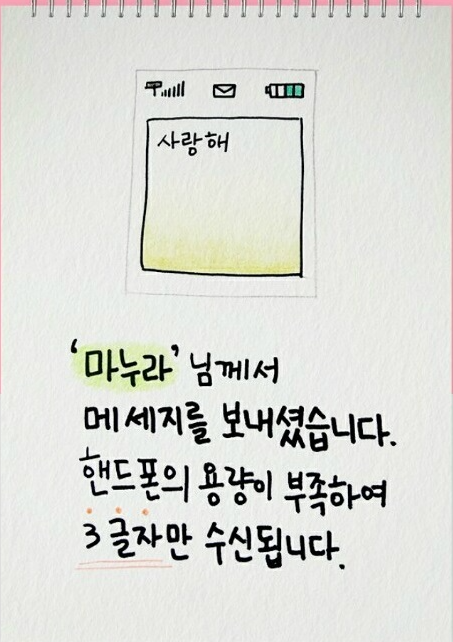 사랑해
'마누라'님께서
메세지를 보내셨습니다.
핸드폰의 용량이 부족하여
3글자만 수신됩니다.